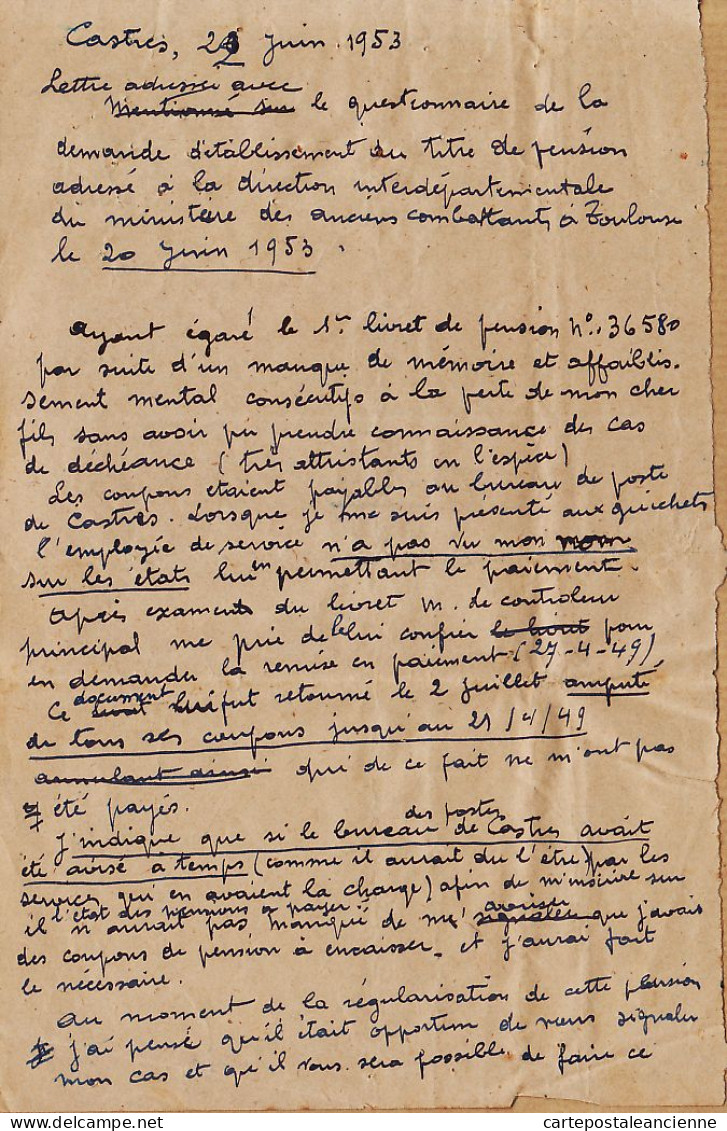 Castres, 22 Juin 1953.
Lettre adressée avec
Mentionné sur le questionnaire de la
demande d'établissement du titre de pension
adressé à la direction interdépartementale
du ministère des anciens combattants à Toulouse
le 20 Juin 1953.
Ayant égaré le 1er livret de pension No. 36580
par suite d'un manque de mémoire et affaiblis.
sement mental consécutifs à la perte de mon cher
fils sans avoir pu prendre connaissance des cas
de déchéance (très attristants en l'espèce)
Les coupons étaient payables au bureau de poste
de Castres. Lorsque je me suis présenté aux guichets
l'employée de service n'a pas vu mon nom
sur les états lui en permettant le paiement.
Après examen du livret M. le controleur
principal me prie de le lui confier pour
en demander la remise en paiement (27-4-49)
Ce document fut retourné le 2 juillet amputé
de tous ses coupons jusqu'au 21/4/49
annulant ainsi qui de ce fait ne m'ont pas
été payés.
J'indique que si le bureau des postes de Castres avait
été avisé a temps (comme il aurait du l'être) par les
services qui en avaient la charge) afin de m'inscrire sur
l'état des pensions a payer.
il n'aurait pas manqué de me' aviser signaler que j'avais
des coupons de pension à encaisser. et j'aurai fait
le nécessaire.
Au moment de la régularisation de cette pension
j'ai pensé qu'il était opportun de vous signaler
mon cas et qu'il vous sera possible de faire ce
cartepostaleancienne.com